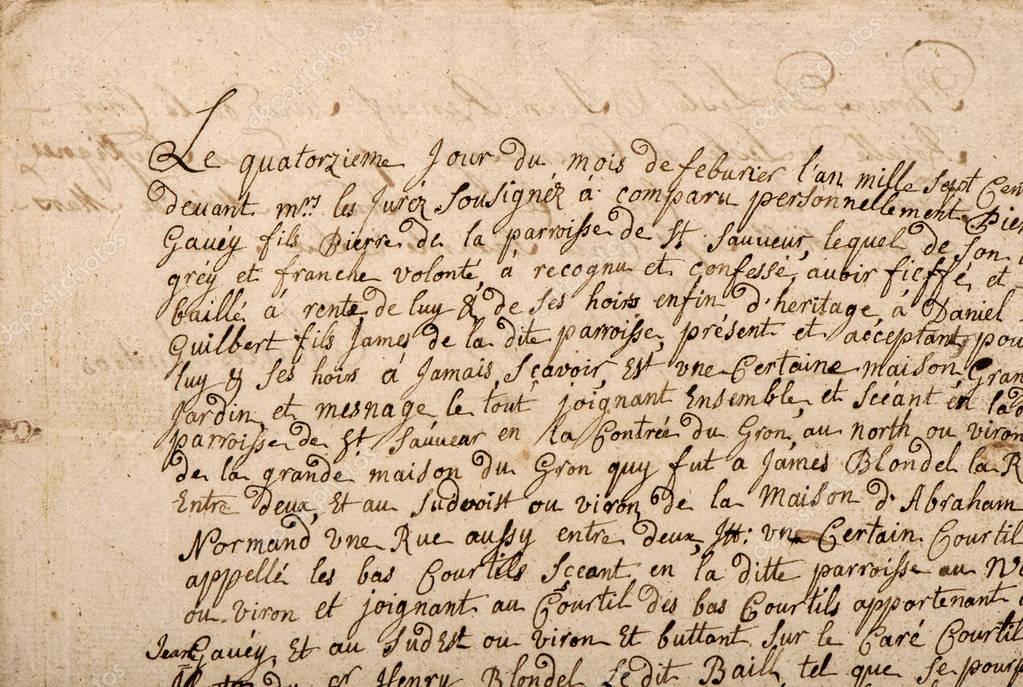 Le quatorzieme Jour du mois de feburier l'an mille sept Cen
devant mrs les Juréz sousignéz à comparu personnellement Pier
Gavéy fils Pierre de la parroisse de St Sauveur, lequel de son
gréy et franche volonté, à recognu et confessé, avoir fieffé, et
baillé à rente de luy & de ses hoirs enfin d'heritage, à Daniel
Guilbert fils James de la dite parroisse, présent et acceptant, pou
luy & ses hoirs à Jamais, Sçavoir, Est vne Certaine maison, Gran
Jardin, et mesnage le tout joignant Ensemble, et scéant en lad
parroisse de St Sauveur en la Contrée du Gron, au north ou viron
de la grande maison du Gron quy fut a James Blondel la R
Entre deux, Et au Sudvoist ou viron de la Maison d'Abraham
Normand vne Rue aussy entre deux, Itt: vn Certain Courtil
appellé les bas Courtils sceant en la ditte parroisse au No
ou viron et joignant au Courtil des bas Courtils appartenant
Jean Gavéy, Et au SudEst ou viron Et buttant sur le Caré Courtil
du Sr Henry Blondel Ledit Baill tel que se pourp